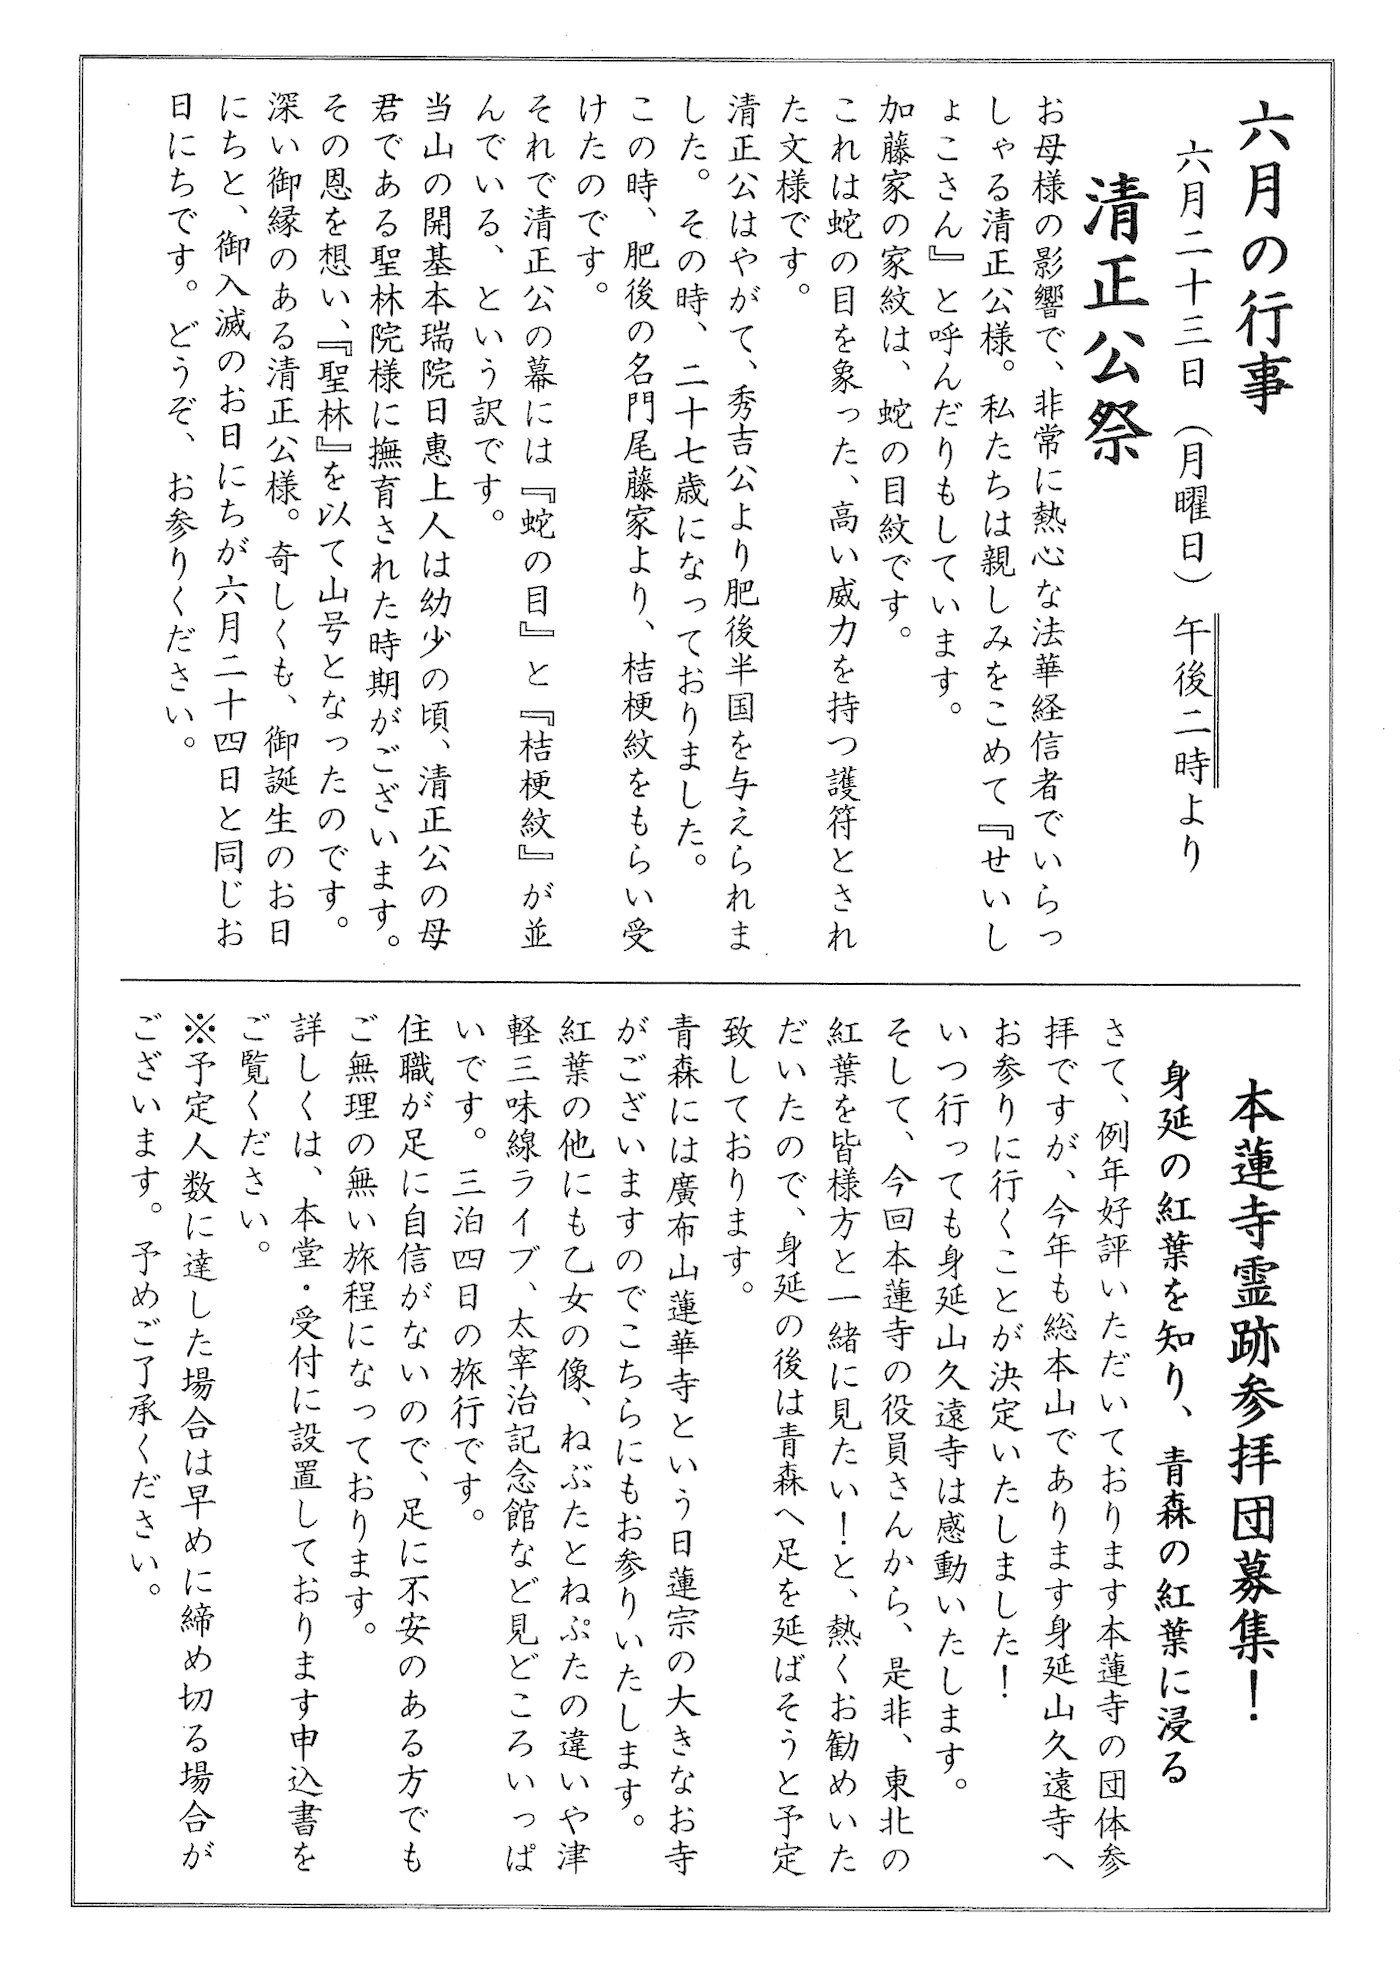 六月の行事
六月二十三日（月曜日）午後二時より
清正公祭
お母様の影響で、非常に熱心な法華経信者でいらっ
しゃる清正公様。私たちは親しみをこめて『せいし
ょこさん』と呼んだりもしています。
加藤家の家紋は、蛇の目紋です。
これは蛇の目を象った、高い威力を持つ護符とされ
た文様です。
清正公はやがて、秀吉公より肥後半国を与えられま
した。その時、二十七歳になっておりました。
この時、肥後の名門尾藤家より、桔梗紋をもらい受
けたのです。
それで清正公の幕には『蛇の目』と『桔梗紋』が並
んでいる、という訳です。
当山の開基本瑞院日惠上人は幼少の頃、清正公の母
君である聖林院様に撫育された時期がございます。
その恩を想い、『聖林』を以て山号となったのです。
深い御縁のある清正公様。奇しくも、御誕生のお日
にちと、御入滅のお日にちが六月二十四日と同じお
日にちです。どうぞ、お参りください。
本蓮寺霊跡参拝団募集！
身延の紅葉を知り、青森の紅葉に浸る
さて、例年好評いただいております本蓮寺の団体参
拝ですが、今年も総本山であります身延山久遠寺へ
お参りに行くことが決定いたしました！
いつ行っても身延山久遠寺は感動いたします。
そして、今回本蓮寺の役員さんから、是非、東北の
紅葉を皆様方と一緒に見たい！と、熱くお勧めいた
だいたので、身延の後は青森へ足を延ばそうと予定
致しております。
青森には廣布山蓮華寺という日蓮宗の大きなお寺
がございますのでこちらにもお参りいたします。
紅葉の他にも乙女の像、ねぶたとねぷたの違いや津
軽三味線ライブ、太宰治記念館など見どころいっぱ
いです。三泊四日の旅行です。
住職が足に自信がないので、足に不安のある方でも
ご無理の無い旅程になっております。
詳しくは、本堂・受付に設置しております申込書を
ご覧ください。
※予定人数に達した場合は早めに締め切る場合が
ございます。予めご了承ください。